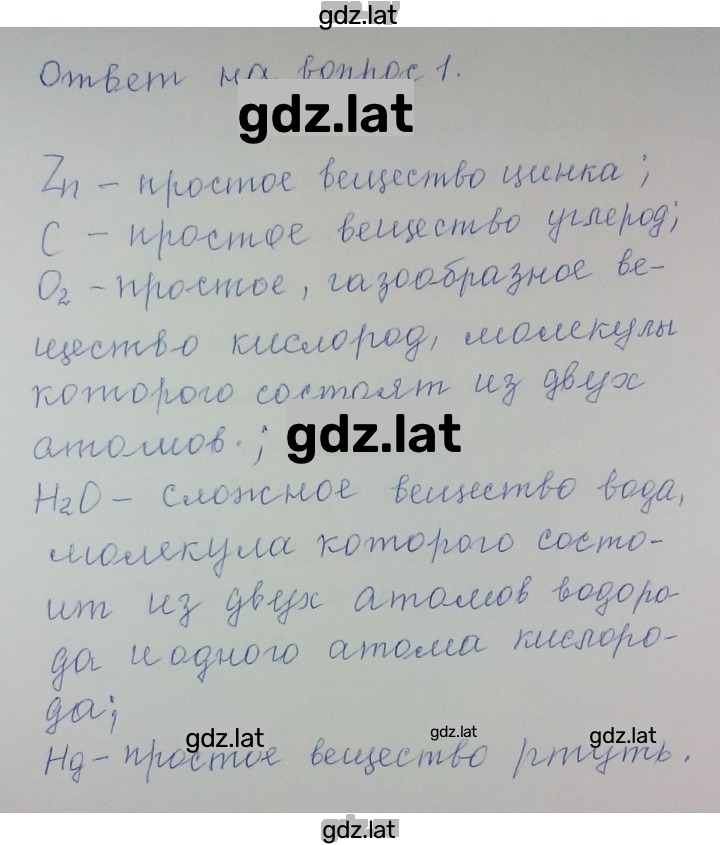 gdz.lat
Ответ на вопрос 1.
gdz.lat
Zn – простое вещество цинка;
C – простое вещество углерод;
O₂ – простое, газообразное ве-
щество кислород, молекулы
которого состоят из двух
атомов.;
gdz.lat
H₂O – сложное вещество вода,
молекула которого состо-
ит из двух атомов водоро-
да и одного атома кислоро-
да;
gdz.lat gdz.lat gdz.lat
Hg – простое вещество ртуть.
gdz.lat